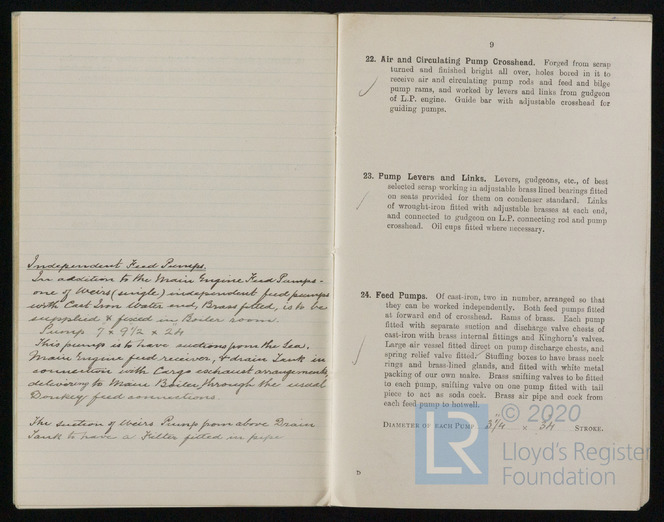 Independent Feed Pumps.
In addition to the Main Engine Feed Pumps -
one of Weirs (single) independent feed pumps
with Cast Iron Water end, Brass fitted, is to be
supplied & fixed in Boiler room.
Pump 7 x 9 1/2 x 24
This pump is to have suctions from the Sea,
Main Engine feed receiver, & drain Tank in
connection with Cargo exhaust arrangements
delivering to Main Boilers through the usual
Donkey feed connections.
The suction of Weirs Pump from above Drain
Tank to have a Filter fitted in pipe
9
22. Air and Circulating Pump Crosshead. Forged from scrap
turned and finished bright all over, holes bored in it to
receive air and circulating pump rods and feed and bilge
pump rams, and worked by levers and links from gudgeon
of L.P. engine. Guide bar with adjustable crosshead for
guiding pumps.
23. Pump Levers and Links. Levers, gudgeons, etc., of best
selected scrap working in adjustable brass lined bearings fitted
on seats provided for them on condenser standard. Links
of wrought-iron fitted with adjustable brasses at each end,
and connected to gudgeon on L.P. connecting rod and pump
crosshead. Oil cups fitted where necessary.
24. Feed Pumps. Of cast-iron, two in number, arranged so that
they can be worked independently. Both feed pumps fitted
at forward end of crosshead. Rams of brass. Each pump
fitted with separate suction and discharge valve chests of
cast-iron with brass internal fittings and Kinghorn's valves.
Large air vessel fitted direct on pump discharge chests, and
spring relief valve fitted. Stuffing boxes to have brass neck
rings and brass-lined glands, and fitted with white metal
packing of our own make. Brass snifting valves to be fitted
to each pump, snifting valve on one pump fitted with tail
piece to act as soda cock. Brass air pipe and cock from
each feed pump to hotwell.
DIAMETER OF EACH PUMP 3 1/4" x STROKE.
D
LR © 2020
Lloyd's Register
Foundation